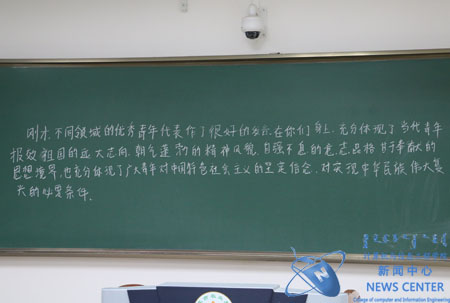 刚才,不同领域的优秀青年代表作了很好的发言,在你们身上,充分体现了当代青年
报效祖国的远大志向、朝气蓬勃的精神风貌、自强不息的意志品格、甘于奉献的
思想境界,也充分体现了广大青年对中国特色社会主义的坚定信念,对实现中华民族伟大复
兴的必要条件。
新闻中心
NEWS CENTER
College of computer and Information Engineering